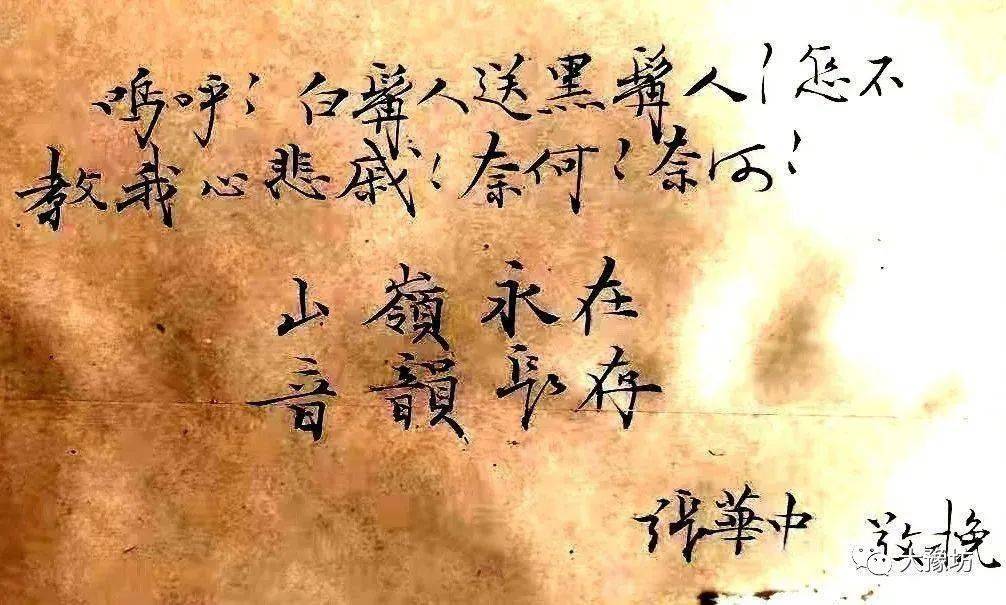 嗚呼！白髯人送黑髯人！怎不
教我心悲戚！奈何！奈何！
山嶺永在
音韻長存
張華中 敬挽
大豫坊